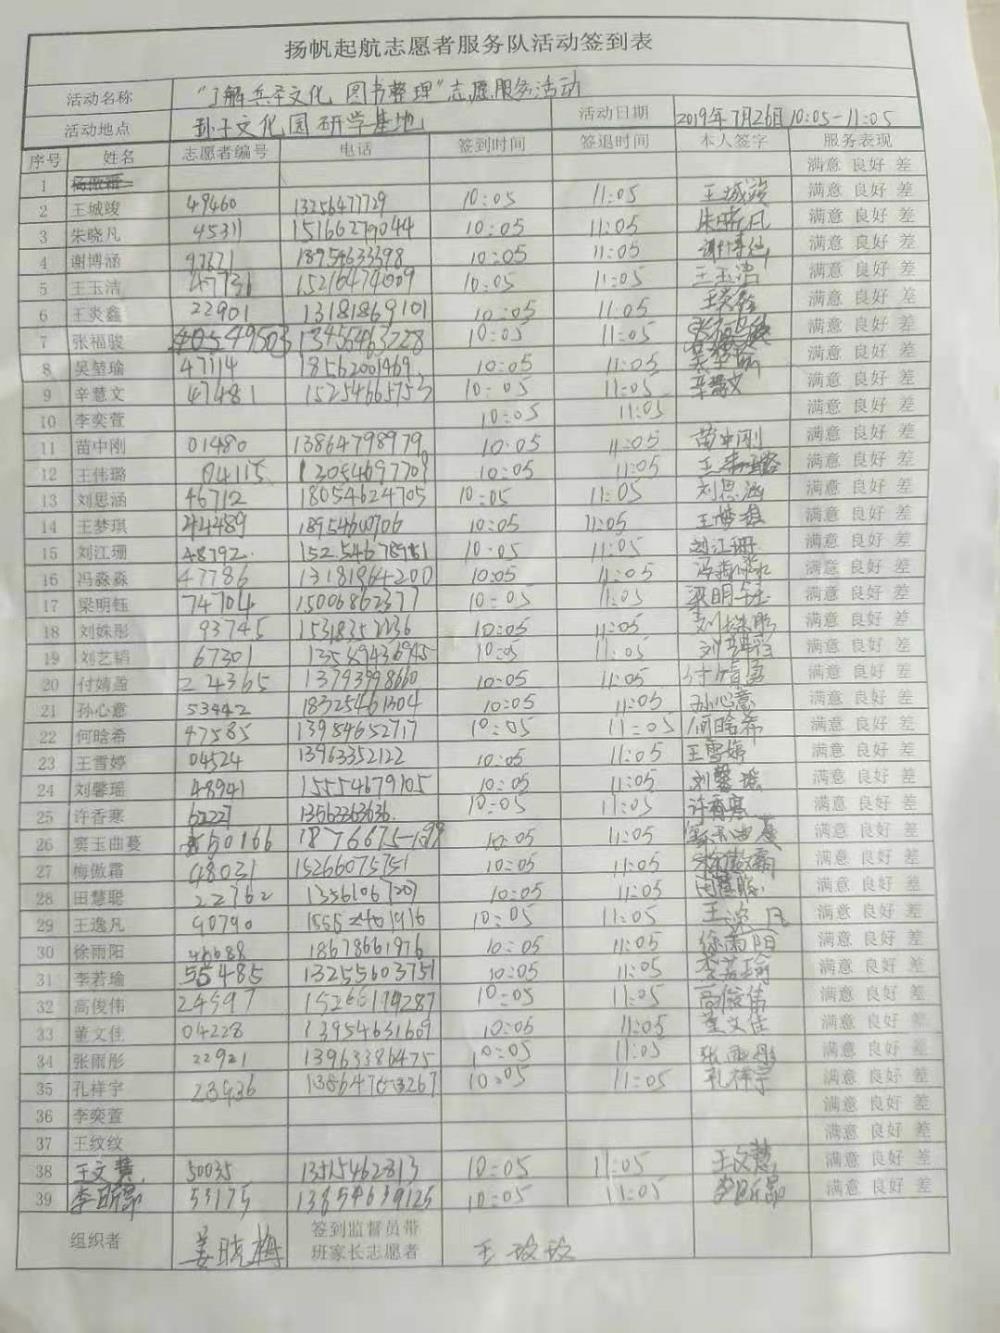 扬帆起航志愿者服务队活动签到表
活动名称 "了解兵圣文化 图书整理"志愿服务活动
活动地点 孙子文化园研学基地 活动日期 2019年7月26日 10:05-11:05
序号 姓名 志愿者编号 电话 签到时间 签退时间 本人签字 服务表现
1 满意 良好 差
2 王城竣 49460 13256477729 10:05 11:05 王城竣 满意 良好 差
3 朱晓凡 45311 15166279044 10:05 11:05 朱晓凡 满意 良好 差
4 谢博涵 18954633398 10:05 11:05 满意 良好 差
5 王玉洁 47731 15216474009 10:05 11:05 王玉洁 满意 良好 差
6 王炎鑫 22901 13181869101 10:05 11:05 王炎鑫 满意 良好 差
7 张福骏 13455463228 10:05 11:05 满意 良好 差
8 吴堃瑜 47114 18562001469 10:05 11:05 满意 良好 差
9 辛慧文 47481 15254665753 10:05 11:05 辛慧文 满意 良好 差
10 李奕萱 10:05 11:05 满意 良好 差
11 苗中刚 01480 13864798979 10:05 11:05 苗中刚 满意 良好 差
12 王伟璐 04115 13054697709 10:05 11:05 满意 良好 差
13 刘思涵 46712 18054624705 10:05 11:05 刘思涵 满意 良好 差
14 王梦琪 44489 18954610706 10:05 11:05 王梦琪 满意 良好 差
15 刘江珊 48792. 10:05 11:05 刘江珊 满意 良好 差
16 冯淼淼 47786 13181964200 10:05 11:05 冯淼淼 满意 良好 差
17 梁明钰 74704 15006862377 10:05 11:05 梁明钰 满意 良好 差
18 刘姝彤 93745 15318352236 10:05 11:05 刘姝彤 满意 良好 差
19 刘艺韬 67301 13589436945 10:05 11:05 刘艺韬 满意 良好 差
20 付婧盈 24365 13793998660 10:05 11:05 付婧盈 满意 良好 差
21 孙心意 53442 18325461304 10:05 11:05 孙心意 满意 良好 差
22 何晗希 47585 13954652717 10:05 11:05 何晗希 满意 良好 差
23 王雪婷 04524 13963352122 10:05 11:05 王雪婷 满意 良好 差
24 刘馨瑶 48941 15554679105 10:05 11:05 刘馨瑶 满意 良好 差
25 许香寒 62227 13563363636. 10:05 11:05 许香寒 满意 良好 差
26 窦玉曲蔓 10:05 11:05 满意 良好 差
27 梅傲霜 48031 15266075751 10:05 11:05 满意 良好 差
28 田慧聪 22762 13561067207 10:05 11:05 田慧聪 满意 良好 差
29 王逸凡 90790 10:05 11:05 王逸凡 满意 良好 差
30 徐雨阳 46688 18678661976 10:05 11:05 徐雨阳 满意 良好 差
31 李若瑜 55485 13255603751 10:05 11:05 李若瑜 满意 良好 差
32 高俊伟 24597 15266194287 10:05 11:05 高俊伟 满意 良好 差
33 董文佳 04228 13954631609 10:06 11:05 董文佳 满意 良好 差
34 张雨彤 22921 13963386475 10:05 11:05 张雨彤 满意 良好 差
35 孔样宇 23936 13864753267 10:05 11:05 孔样宇 满意 良好 差
36 李奕萱 满意 良好 差
37 王纹纹 满意 良好 差
38 王文慧 50035 13515462813 10:05 11:05 王文慧 满意 良好 差
39 李昕昂 53175 13854639125 10:05 11:05 李昕昂 满意 良好 差
组织者 姜晓梅 签到监督员带班家长志愿者 王玫玫